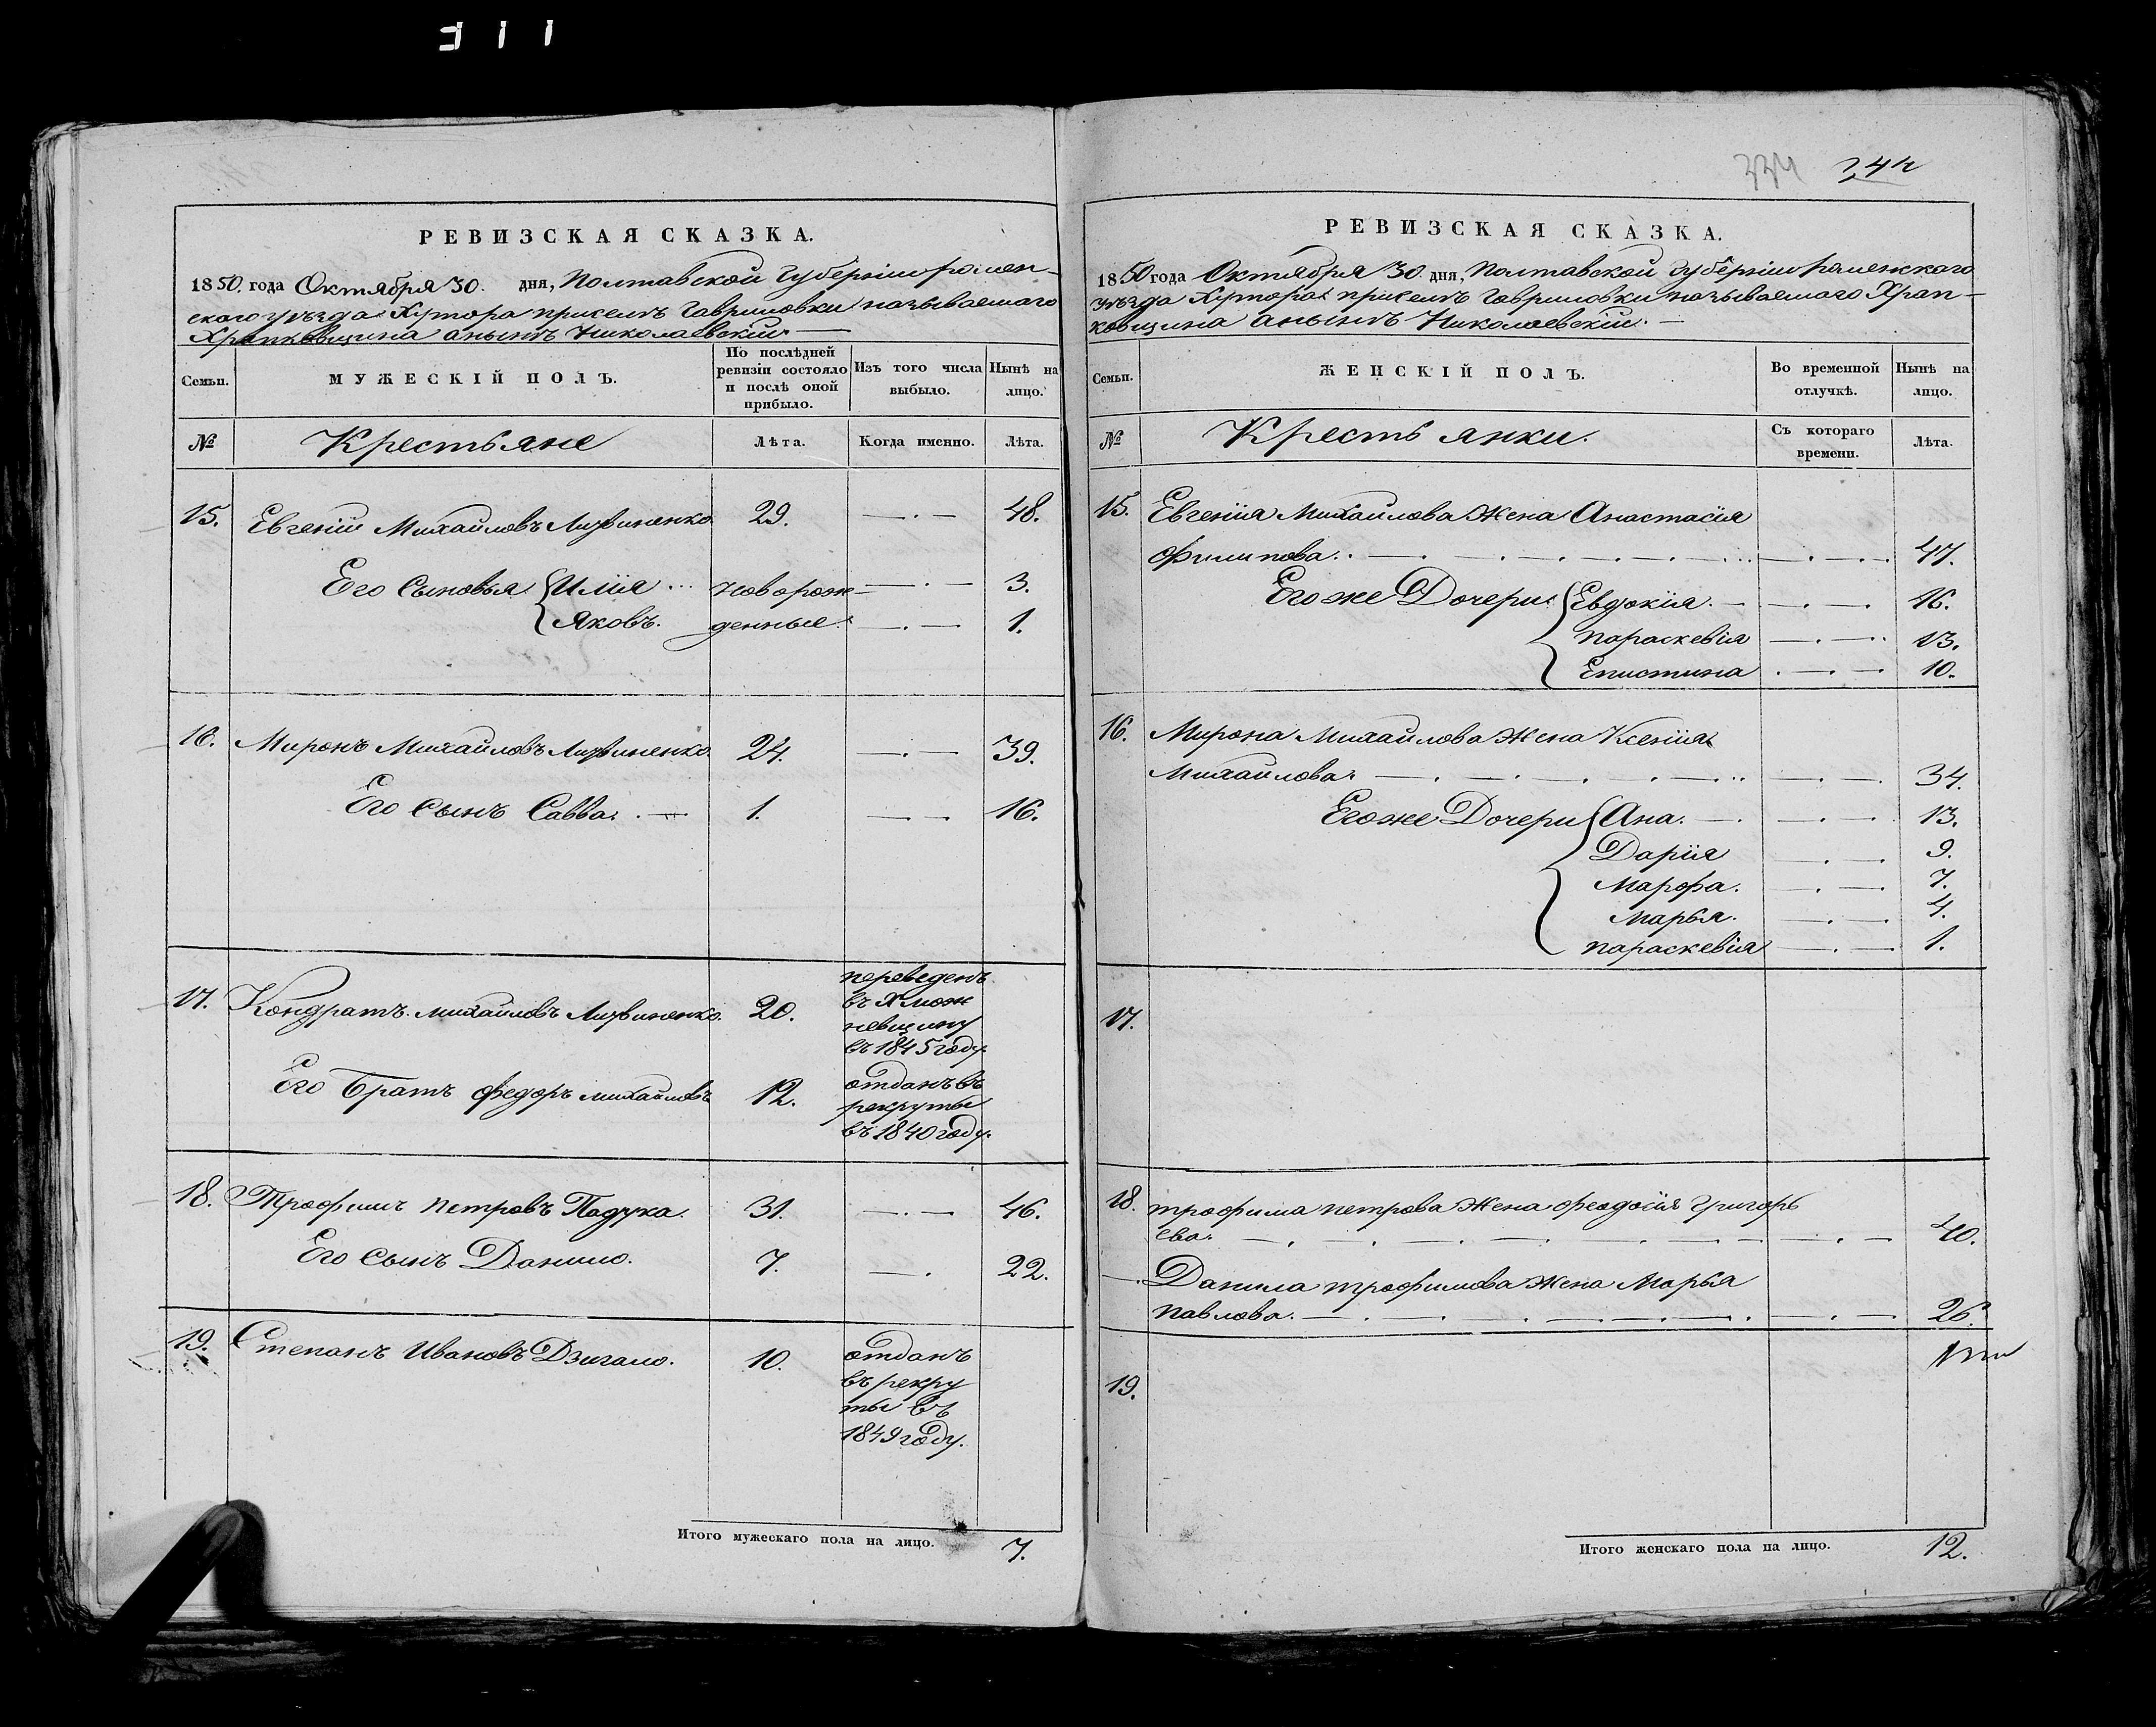 311
РЕВИЗСКАЯ СКАЗКА.
1850. года Октября 30. дня, Полтавской Губерніи ромен-
скаго уѣзда Хутора приселѣ Гавриловки называемаго
Храпковщина анынѣ Николаевскій. —
Семьи.
МУЖЕСКІЙ ПОЛЪ.
По послѣдней
ревизіи состояло
и послѣ оной
прибыло.
Изъ того числа
выбыло.
Нынѣ на
лицо.
№
Крестьяне
Лѣта.
Когда именно.
Лѣта.
15. Евгеній Михайловъ Литвиненко. 29. —.— 48.
Его Сыновья { Илія ... новорож- —.— 3.
Яковъ. денные. —.— 1.
16. Миронъ Михайловъ Литвиненко. 24. —.— 39.
Его Сынъ Савва. .— 1. —.— 16.
17. Кондратъ Михайловъ Литвиненко. 20.
переведенъ
въ Хмож
невщину
въ 1845 году.
Его Братъ Федоръ Михайловъ 12.
отданъ въ
рекруты
въ 1840 году.
18. Трофимъ Петровъ Падука. 31. —.— 46.
Его Сынъ Данило. 7. —. 22.
19. Степанъ Ивановъ Дзигало. 10.
отданъ
въ рекру
ты въ
1849 году.
Итого мужескаго пола на лицо. 7.
334 342
РЕВИЗСКАЯ СКАЗКА.
1850 года Октября 30. дня, Полтавской Губерніи роменскаго
уѣзда Хутора приселѣ Гавриловки называемаго Храп-
ковщина анынѣ Николаевскій. —
Семьи.
ЖЕНСКІЙ ПОЛЪ.
Во временной
отлучкѣ.
Нынѣ на
лицо.
№
Крестьянки.
Съ котораго
времени.
Лѣта.
15. Евгенія Михайлова Жена Анастасія
Филипова. 47.
Егоже Дочери { Евдокія. — —.—. 16.
Параскевія —.—. 13.
Епистима .—.— 10.
16. Мирона Михайлова Жена Ксенія
Михайлова. 34.
Егоже Дочери { Ана. —. —.—. 13.
Дарія .—. 9.
Марфа. —.—. 7.
Марья. —.—. 4.
Параскевія —.— 1.
17.
18. Трофима Петрова Жена Феодосія Григорь
ева. 40.
—. Данила Трофимова Жена Марья
Павлова. 26.
19.
Итого женскаго пола на лицо. 12.